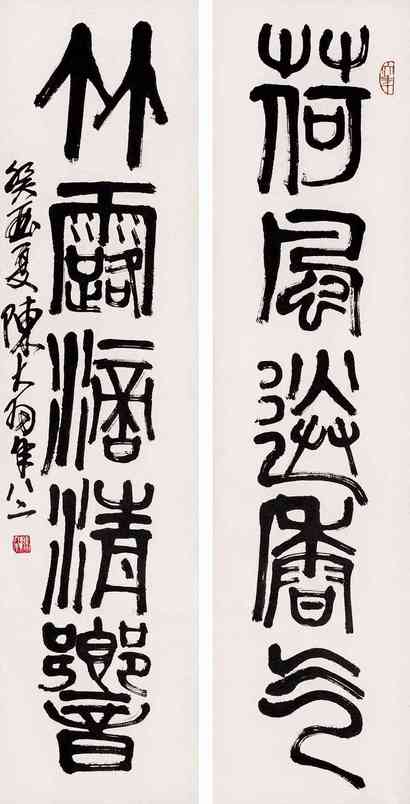 荷風送香气
竹露滴清響
癸酉夏陳大羽年八二